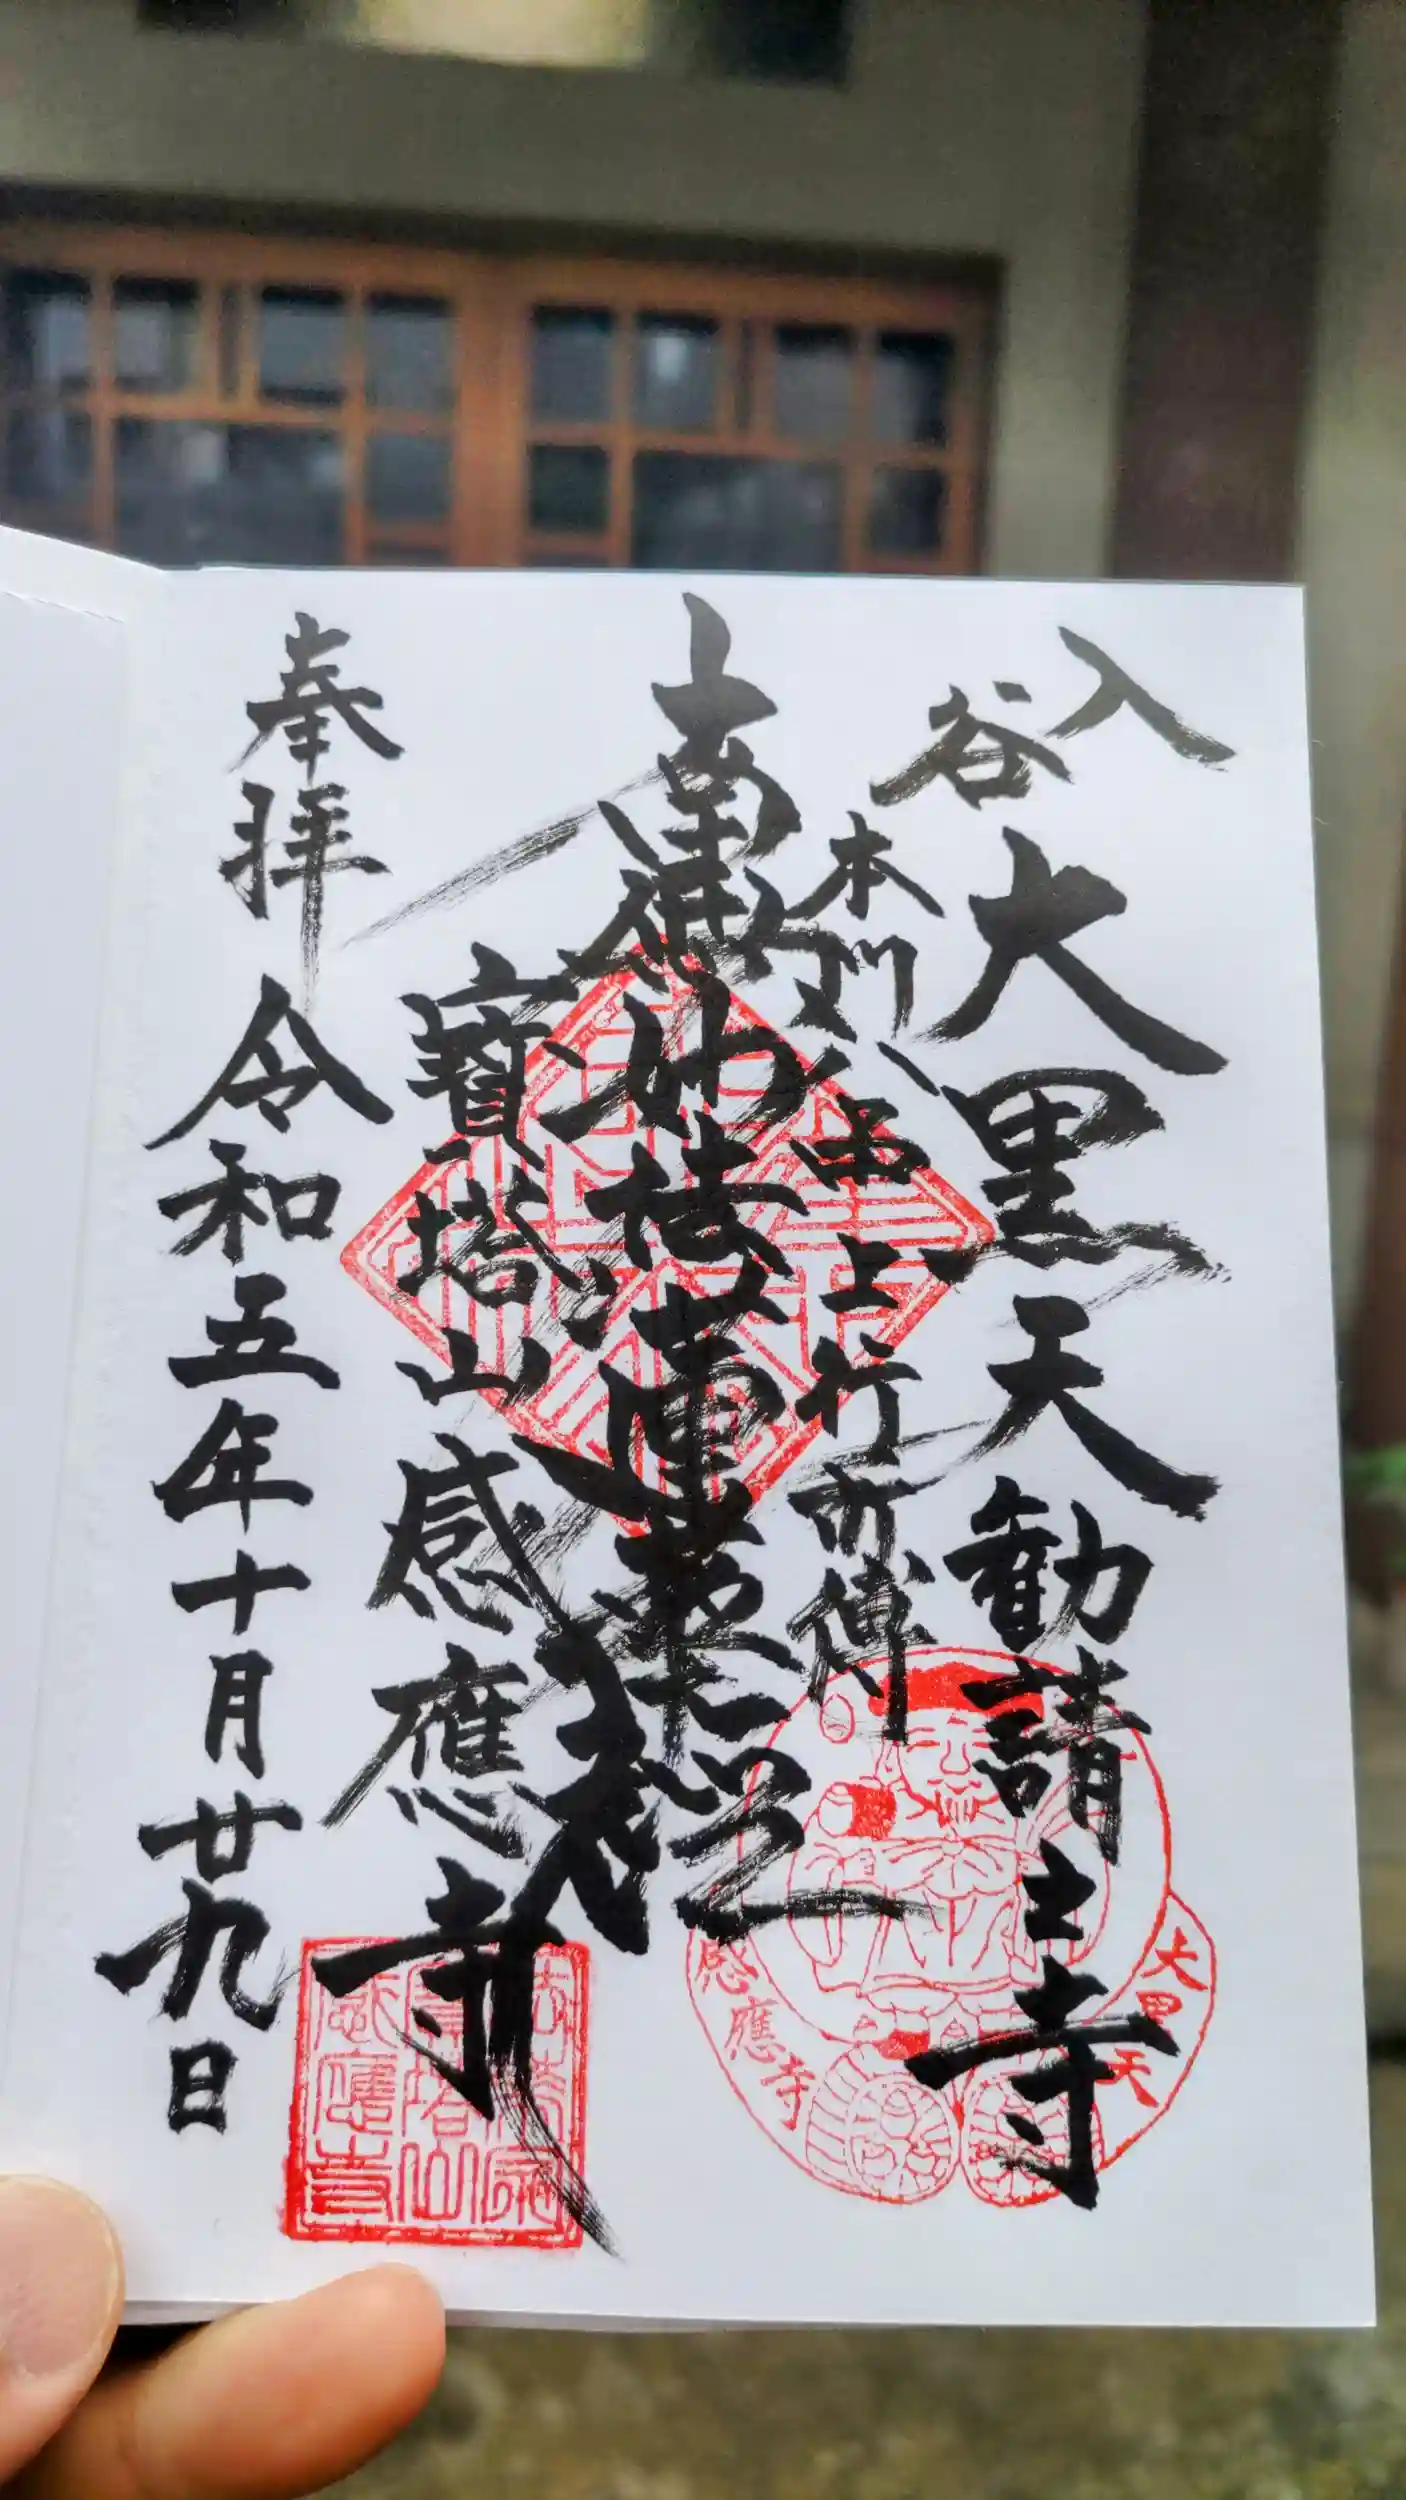 入谷
大黒天勧請土寺
本門八品上行所傳
南無妙法蓮華経
寶塔山
感應寺
奉拝
令和五年十月廿九日
大黒天
感應寺
寶塔山
感應寺